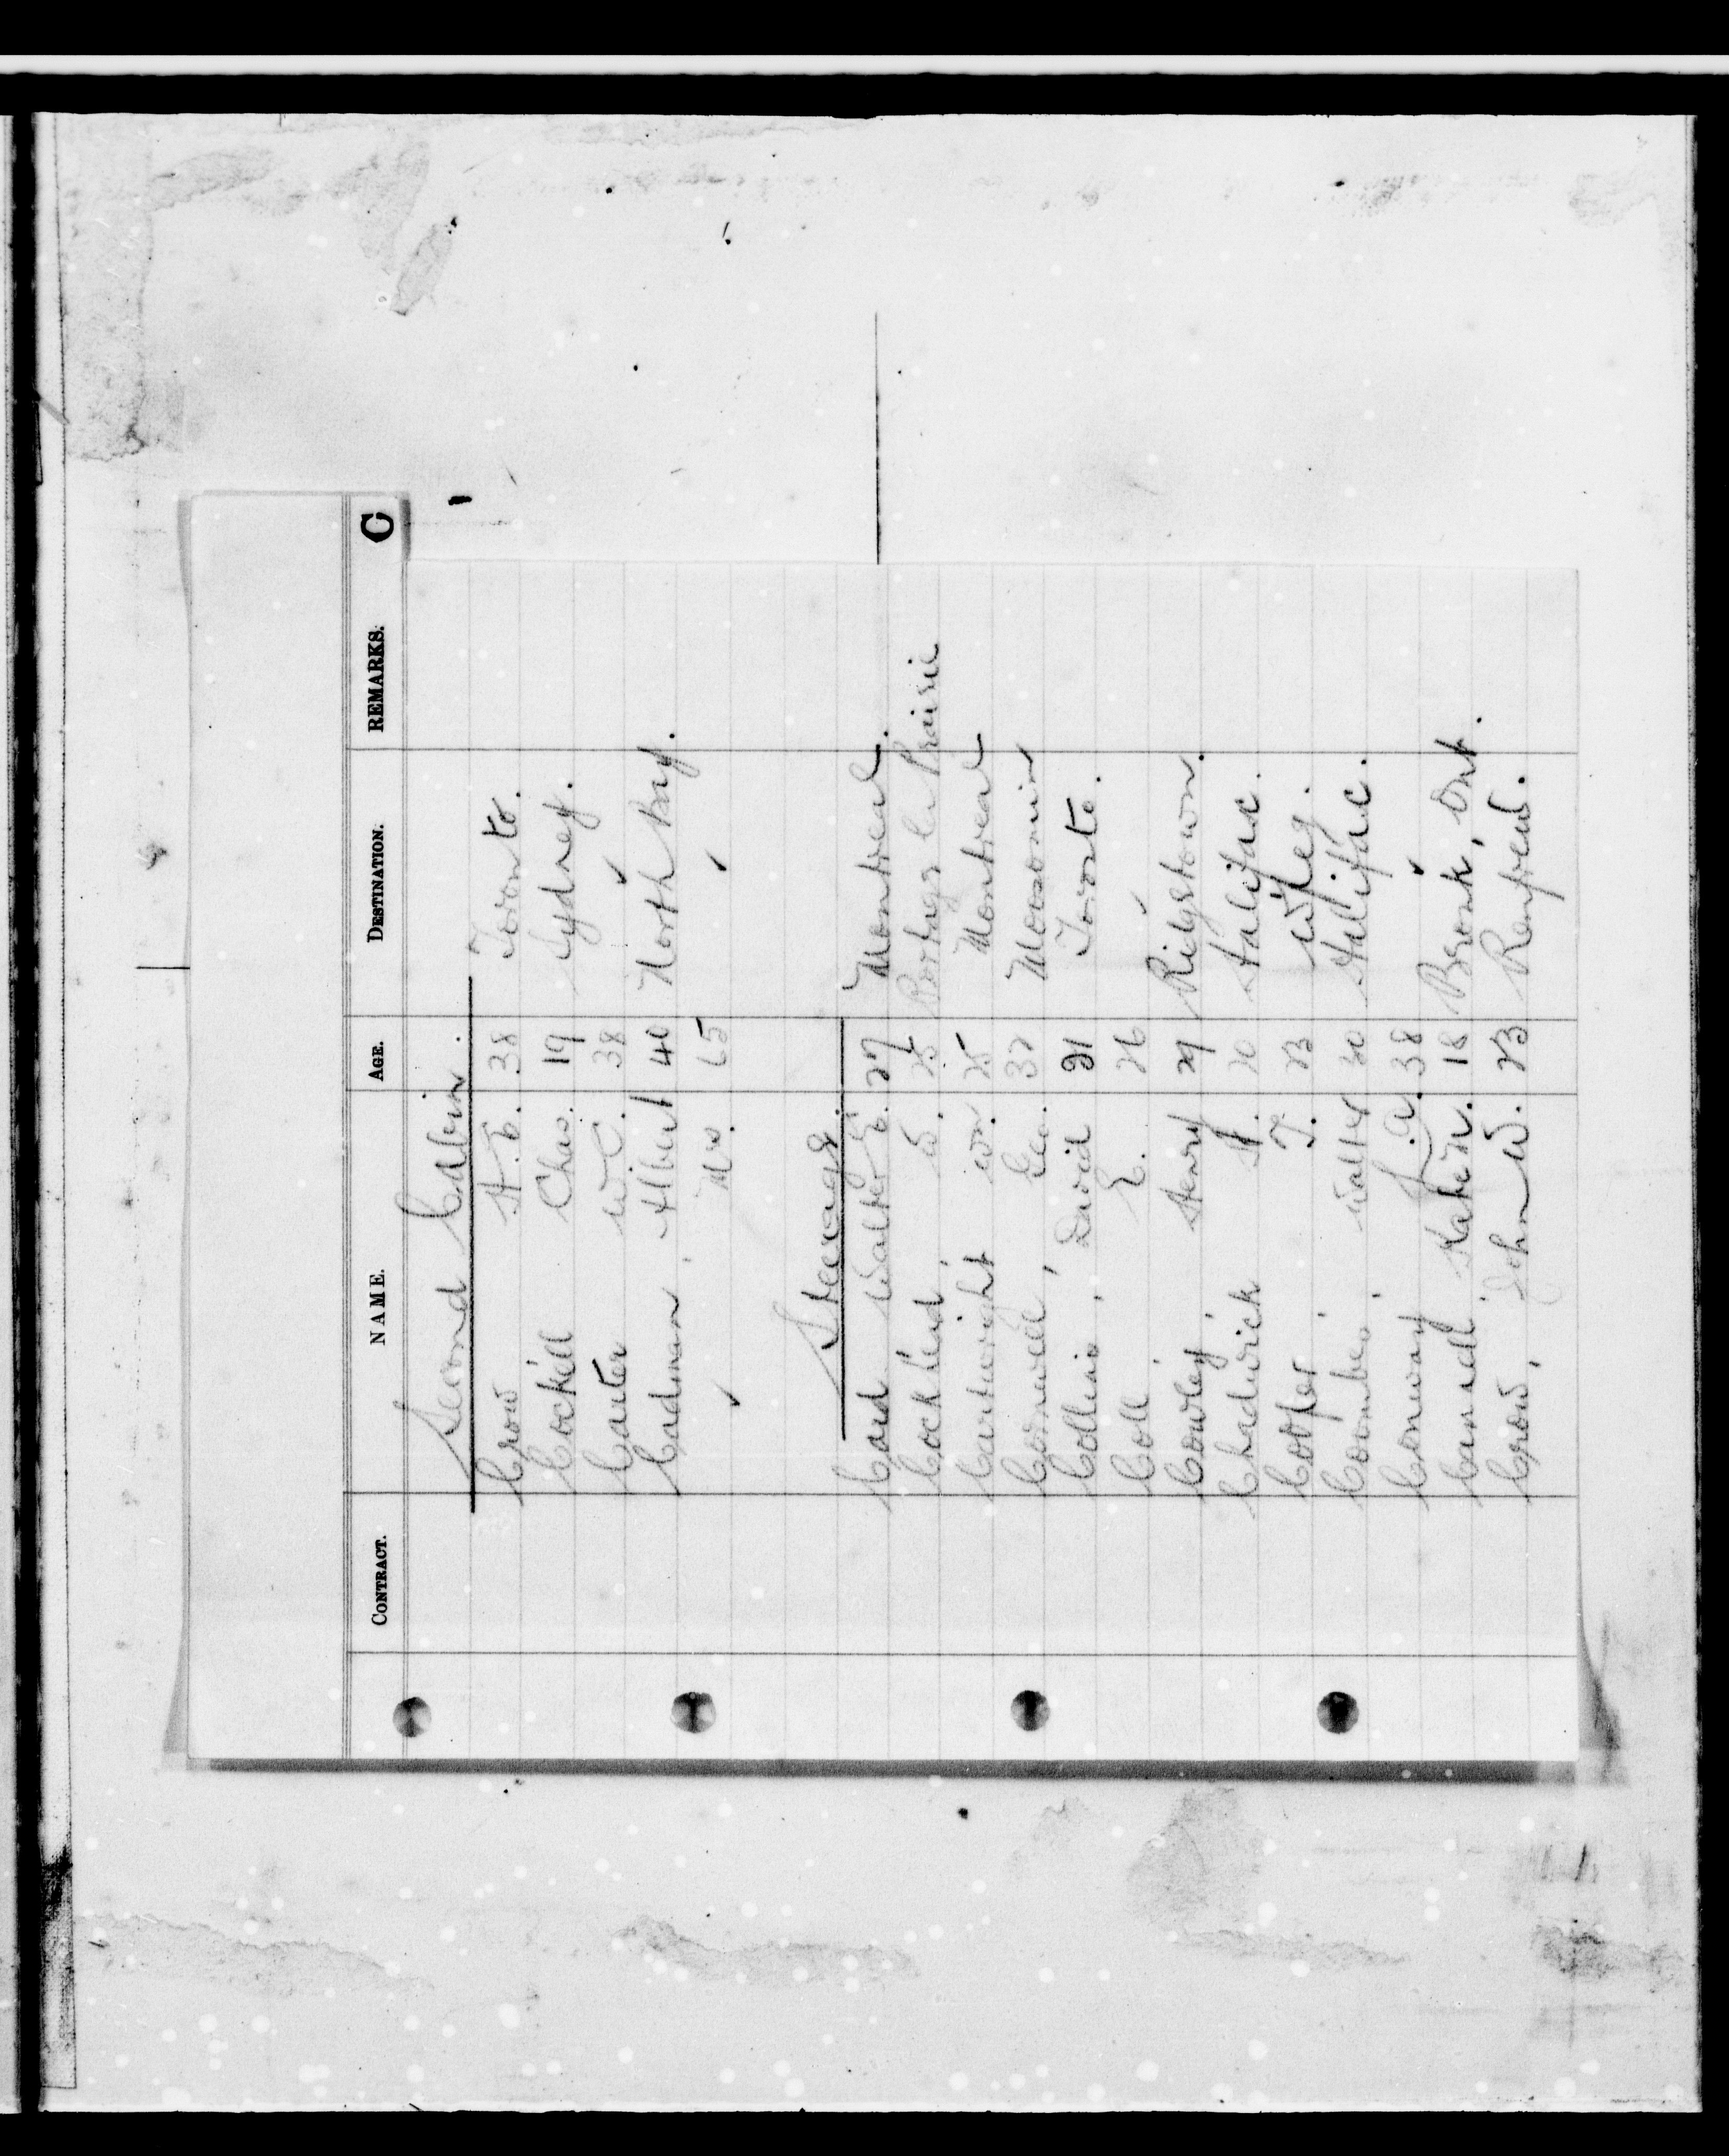 CONTRACT. NAME. AGE. DESTINATION. REMARKS. C
Second Cabin.
Crow H. E. 38 Toronto.
Cockell Chas. 19 Sydney.
Carter W. C. 38 ✓
Cadman, Albert 40 North Bay.
✓ Mrs. 65 ✓
Steerage.
Card Walter E. 27 Montreal.
Cockhead, W. 25 Portage La Prairie
Cartwright Wm. 25 Montreal
Cornwell, Geo. 32 Moosomin
Collins, David 21 Toronto.
Coll, E. 26 ✓
Cowley, Henry 29 Ridgetown.
Chadwick H. 20 Halifax.
Cooper, T. 23 Wpeg.
Coombes, Walter 30 Halifax.
Conway, J. A. 38 ✓
Kate M. 18 Ont.
Crow, John W. 23 Renfrew.